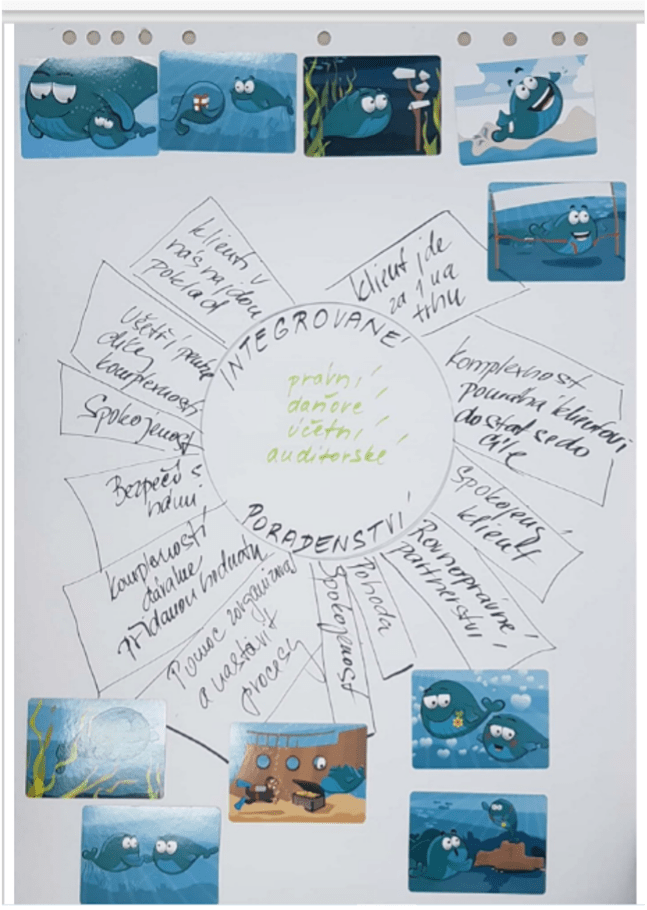 INTEGROVANÉ
právní
daňové
účetní
auditorské
PORADENSTVÍ
klienti v
nás najdou
poklad
klient jde
za 1 na
trhu
komplexnost
pomáhá klientovi
dostat se do
cíle
Spokojený
klient
Rovnoprávné
partnerství
Pohoda
Spokojenost
Pomoc zorganizovat
a nastavit
procesy
komplexností
dáváme
přidanou hodnotu
Bezpečí s
námi
Spokojenost
Ušetří
díky
komplexnosti